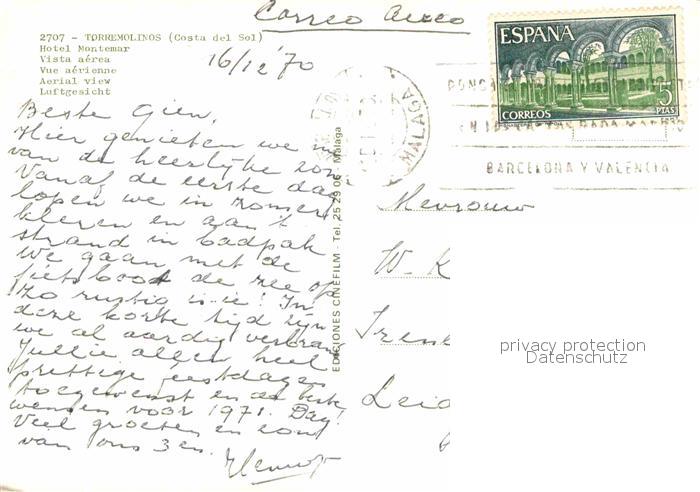 Correo Aereo
2707 - TORREMOLINOS (Costa del Sol)
Hotel Montemar
Vista aérea
Vue aérienne
Aerial view
Luftgesicht
16/12 '70
ESPAÑA
CORREOS
5 PTAS
MALAGA
BARCELONA Y VALENCIA
Beste Gien,
Hier genieten we nu
van de heerlijke zon.
Vanaf de eerste dag
lopen we in zomer
kleren en aan 't
strand in badpak
We gaan met de
fietsboot de zee op
Zo rustig is-ie! In
deze korte tijd zijn
we al aardig verbrand
Jullie allen heel
prettige feestdagen
toegewenst en de beste
wensen voor 1971. Dag!
Veel groeten en
van ons 3en.
EDICIONES CINEFILM - Tel. 25 29 06 - Málaga
Mevrouw
W. K
Irene
Leid
privacy protection
Datenschutz